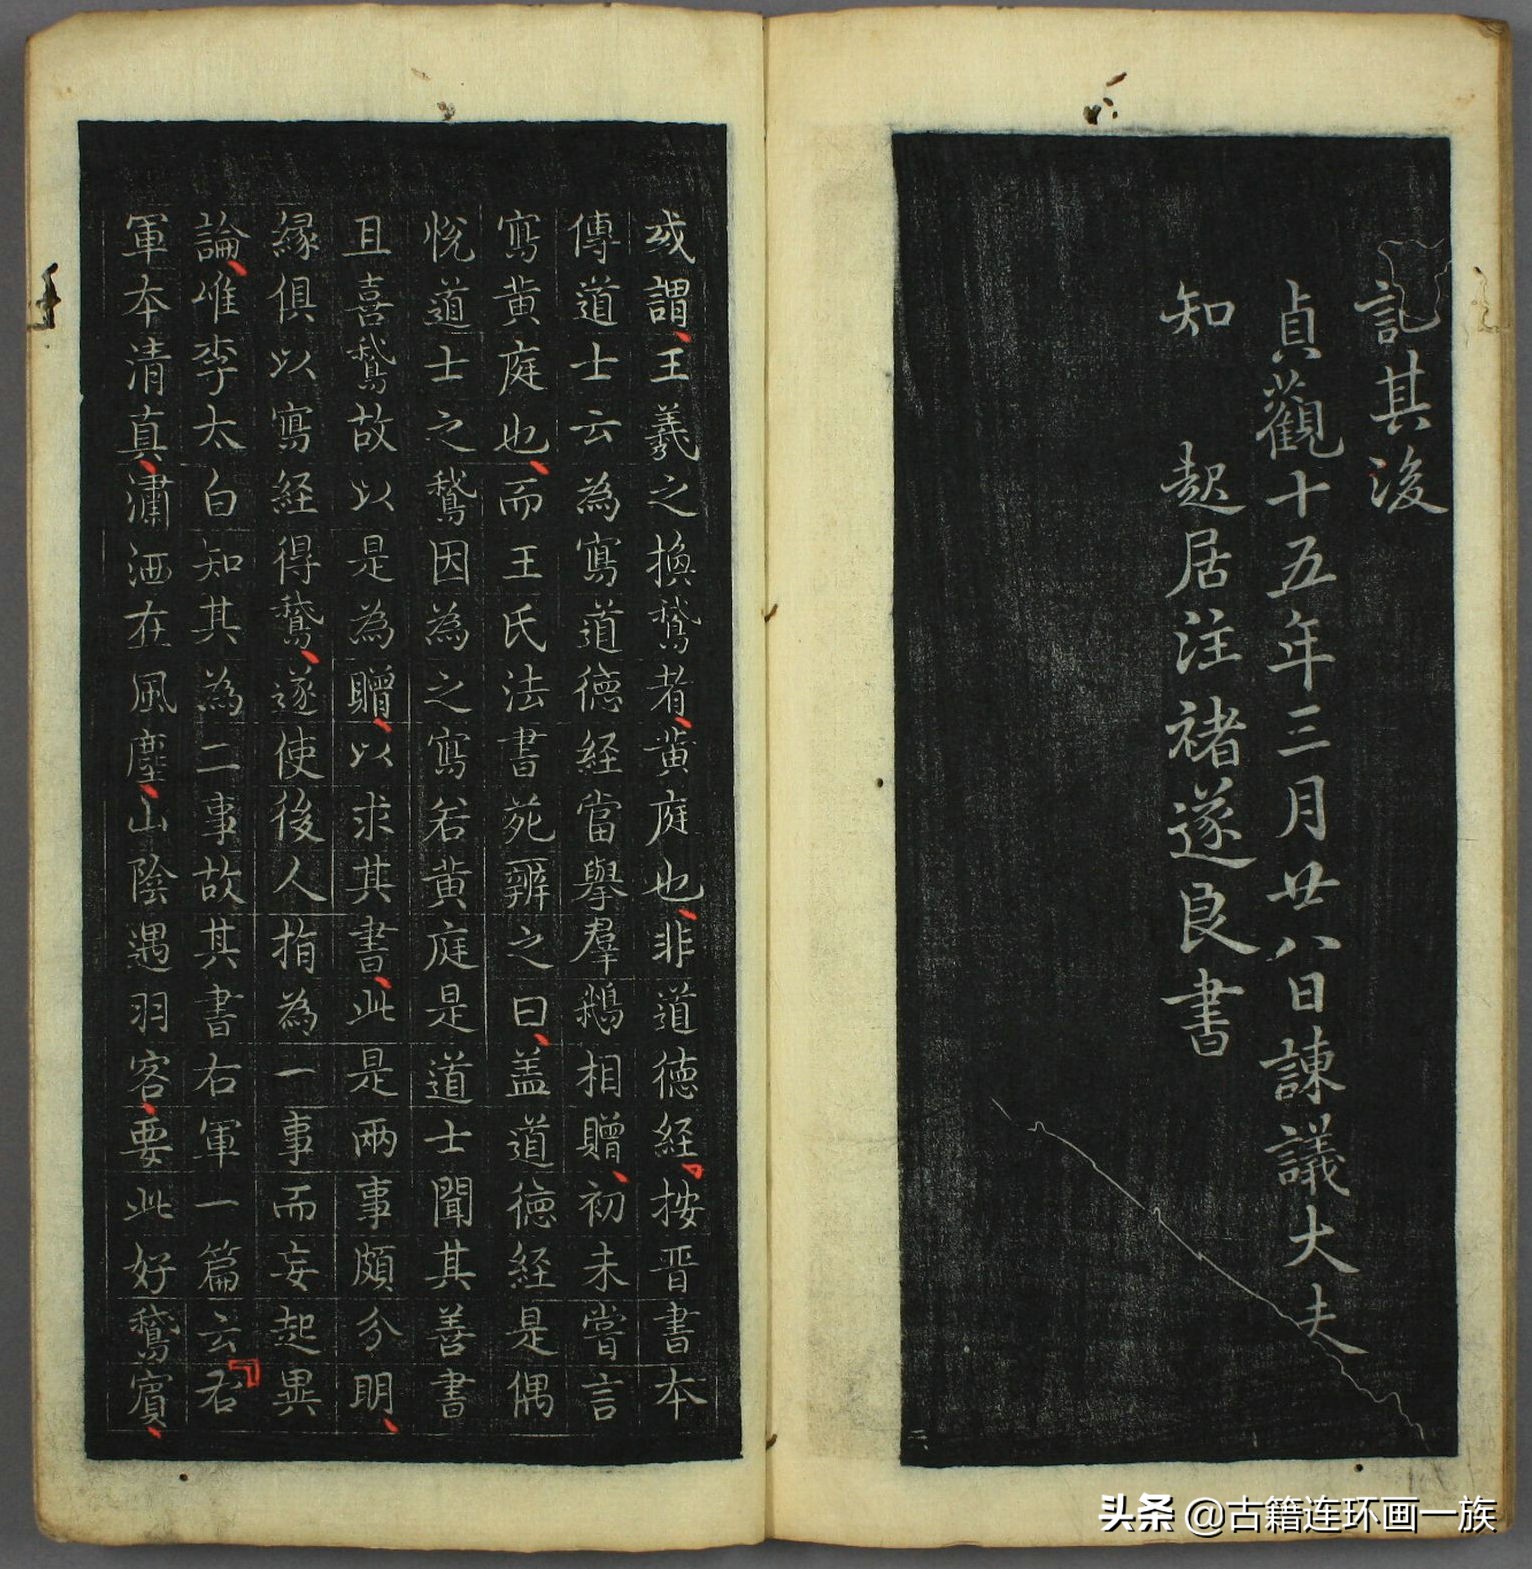 記其後
貞觀十五年三月廿八日諫議大夫
知 起居注褚遂良書
或謂王羲之換鵞者黄庭也非道德経按晋書本
傳道士云為寫道德経當舉羣鵝相贈初未嘗言
寫黄庭也而王氏法書苑辨之曰盖道德経是偶
悅道士之鵞因為之寫若黄庭是道士聞其善書
且喜鵞故以是為贈以求其書此是兩事頗分明
緣俱以寫経得鵞遂使後人指為一事而妄起異
論唯李太白知其為二事故其書右軍一篇云右
軍本清真瀟洒在風塵山陰遇羽客要此好鵞賓
头条 @古籍连环画一族